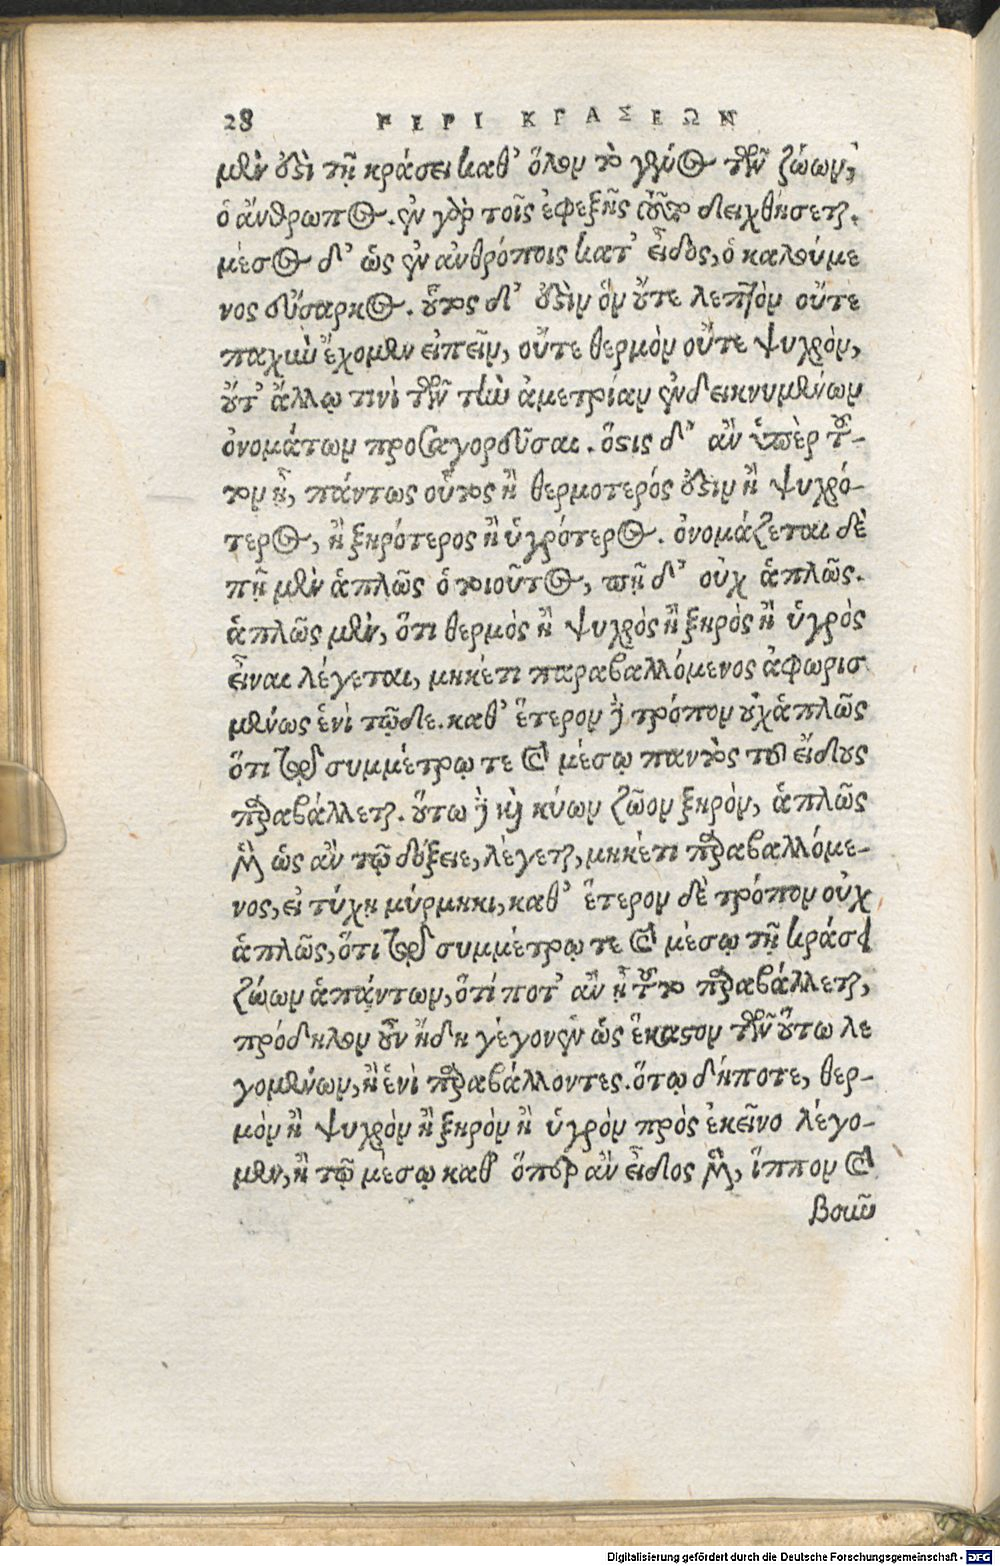 28 ΠΕΡΙ ΚΡΑΣΕΩΝ
μὲν ἐστὶ τῇ κράσει καθ' ὅλον τὸ γένος τῶν ζώων,
ὁ ἄνθρωπος. ἐν γὰρ τοῖς ἐφεξῆς αὐτὸ δειχθήσεται.
μέσος δ' ὡς ἐν ἀνθρόποις κατ' εἶδος, ὁ καλούμε
νος εὔσαρκος. οὗτος δ' ἐστὶν ὃν οὔτε λεπτὸν οὔτε
παχὺν ἔχομεν εἰπεῖν, οὔτε θερμὸν οὔτε ψυχρὸν,
οὔτ' ἄλλῳ τινὶ τῶν τὴν ἀμετρίαν ἐνδεικνυμένων
ὀνομάτων προσαγορεῦσαι. ὅστις δ' ἂν ὑπὲρ τοῦ-
τον ᾖ, πάντως οὗτος ἢ θερμοτερός ἐστιν ἢ ψυχρό-
τερος, ἢ ξηρότερος ἢ ὑγρότερος. ὀνομάζεται δὲ
πῇ μὲν ἁπλῶς ὁ τοιοῦτος, πῇ δ' οὐχ ἁπλῶς.
ἁπλῶς μὲν, ὅτι θερμὸς ἢ ψυχρὸς ἢ ξηρὸς ἢ ὑγρὸς
εἶναι λέγεται, μηκέτι παραβαλλόμενος ἀφωρισ
μένως ἑνὶ τῷδε. καθ' ἕτερον δὲ τρόπον οὐχ ἁπλῶς
ὅτι τῷ συμμέτρῳ τε καὶ μέσῳ παντὸς τοῦ εἴδους
παραβάλλεται. οὕτω δὲ καὶ κύων ζῶον ξηρὸν, ἁπλῶς
μὲν ὡς ἄν τῷ δόξειε, λέγεται, μηκέτι παραβαλλόμε-
νος, εἰ τύχῃ μύρμηκι, καθ' ἕτερον δὲ τρόπον οὐχ
ἁπλῶς, ὅτι τῷ συμμέτρῳ τε καὶ μέσῳ τῇ κράσει
ζώων ἁπάντων, ὅτί ποτ' ἂν ᾖ τοῦτο παραβάλλεται,
πρόδηλον οὖν ἤδη γέγονεν ὡς ἕκαστον τῶν οὕτω λε
γομένων, ἢ ἑνὶ παραβάλλοντες. ὅτῳ δήποτε, θερ-
μὸν ἢ ψυχρὸν ἢ ξηρὸν ἢ ὑγρὸν πρὸς ἐκεῖνο λέγο-
μεν, ἢ τῷ μέσῳ καθ' ὅπερ ἂν εἶδος ᾖ, ἵππον καὶ
βοῦν
Digitalisierung gefördert durch die Deutsche Forschungsgemeinschaft - DFG